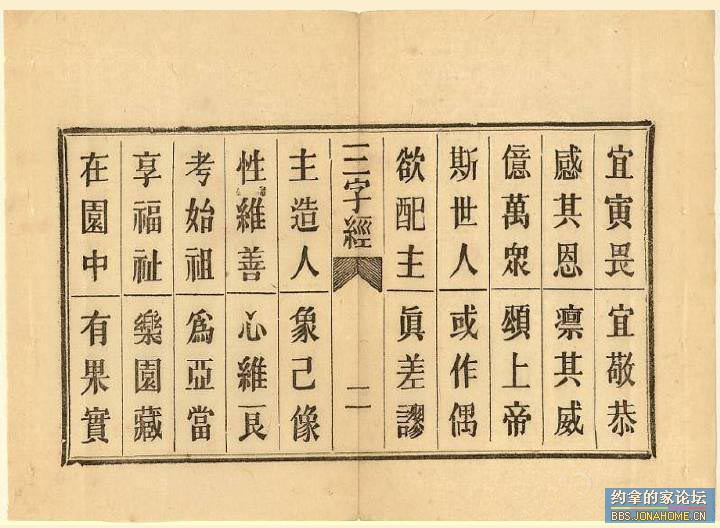 宜寅畏 宜敬恭
感其恩 凛其威
億萬衆 頌上帝
斯世人 或作偶
欲配主 眞差謬
三字經 二
主造人 象己像
性維善 心維良
考始祖 爲亞當
享福祉 樂園藏
在園中 有果實
约拿的家论坛
BBS.JONAHOME.CN